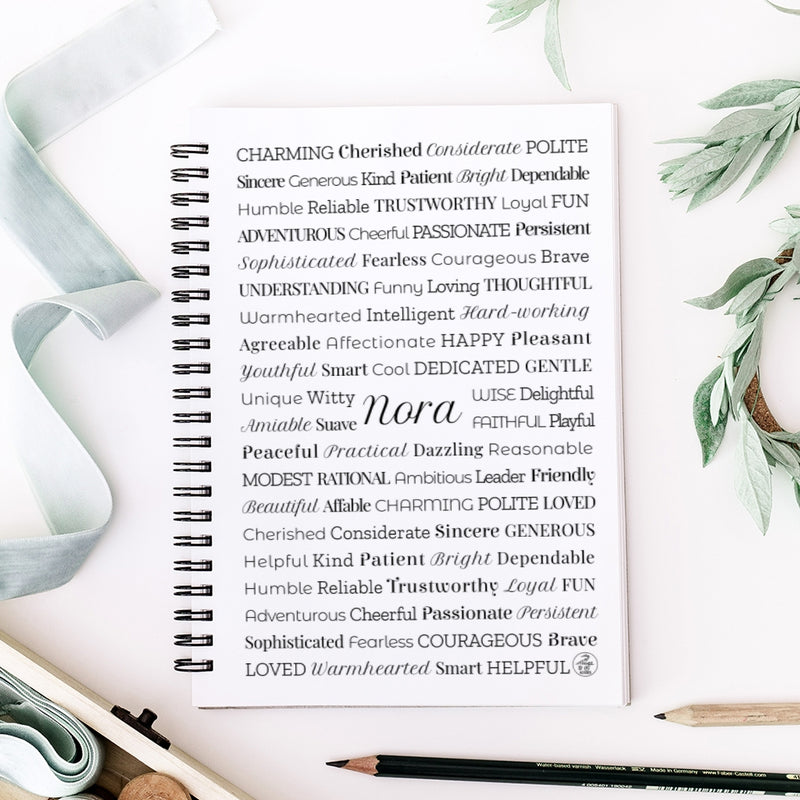 CHARMING Cherished Considerate POLITE
Sincere Generous Kind Patient Bright Dependable
Humble Reliable TRUSTWORTHY Loyal FUN
ADVENTUROUS Cheerful PASSIONATE Persistent
Sophisticated Fearless Courageous Brave
UNDERSTANDING Funny Loving THOUGHTFUL
Warmhearted Intelligent Hard-working
Agreeable Affectionate HAPPY Pleasant
Youthful Smart Cool DEDICATED GENTLE
Unique Witty
Amiable Suave
nora
WISE Delightful
FAITHFUL Playful
Peaceful Practical Dazzling Reasonable
MODEST RATIONAL Ambitious Leader Friendly
Beautiful Affable CHARMING POLITE LOVED
Cherished Considerate Sincere GENEROUS
Helpful Kind Patient Bright Dependable
Humble Reliable Trustworthy Loyal FUN
Adventurous Cheerful Passionate Persistent
Sophisticated Fearless COURAGEOUS Brave
LOVED Warmhearted Smart HELPFUL
Water-based varnish Wasserlack Made in Germany www.Faber-Castell.com